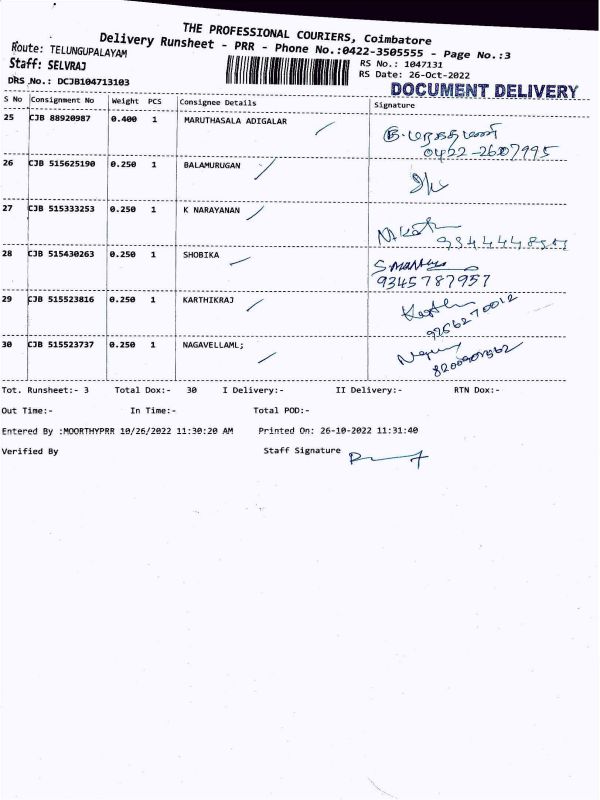 THE PROFESSIONAL COURIERS, Coimbatore
Delivery Runsheet - PRR - Phone No.:0422-3505555 - Page No.:3
Route: TELUNGUPALAYAM
RS No.: 1047131
Staff: SELVRAJ
RS Date: 26-Oct-2022
DRS No.: DCJB104713103
DOCUMENT DELIVERY
S No Consignment No Weight PCS Consignee Details Signature
25 CJB 88920987 0.400 1 MARUTHASALA ADIGALAR
0422-2607995
26 CJB 515625190 0.250 1 BALAMURUGAN
27 CJB 515333253 0.250 1 K NARAYANAN
28 CJB 515430263 0.250 1 SHOBIKA
9345787957
29 CJB 515523816 0.250 1 KARTHIKRAJ
30 CJB 515523737 0.250 1 NAGAVELLAML;
Tot. Runsheet:- 3 Total Dox:- 30 I Delivery:- II Delivery:- RTN Dox:-
Out Time:- In Time:- Total POD:-
Entered By :MOORTHYPRR 10/26/2022 11:30:20 AM Printed On: 26-10-2022 11:31:40
Verified By Staff Signature